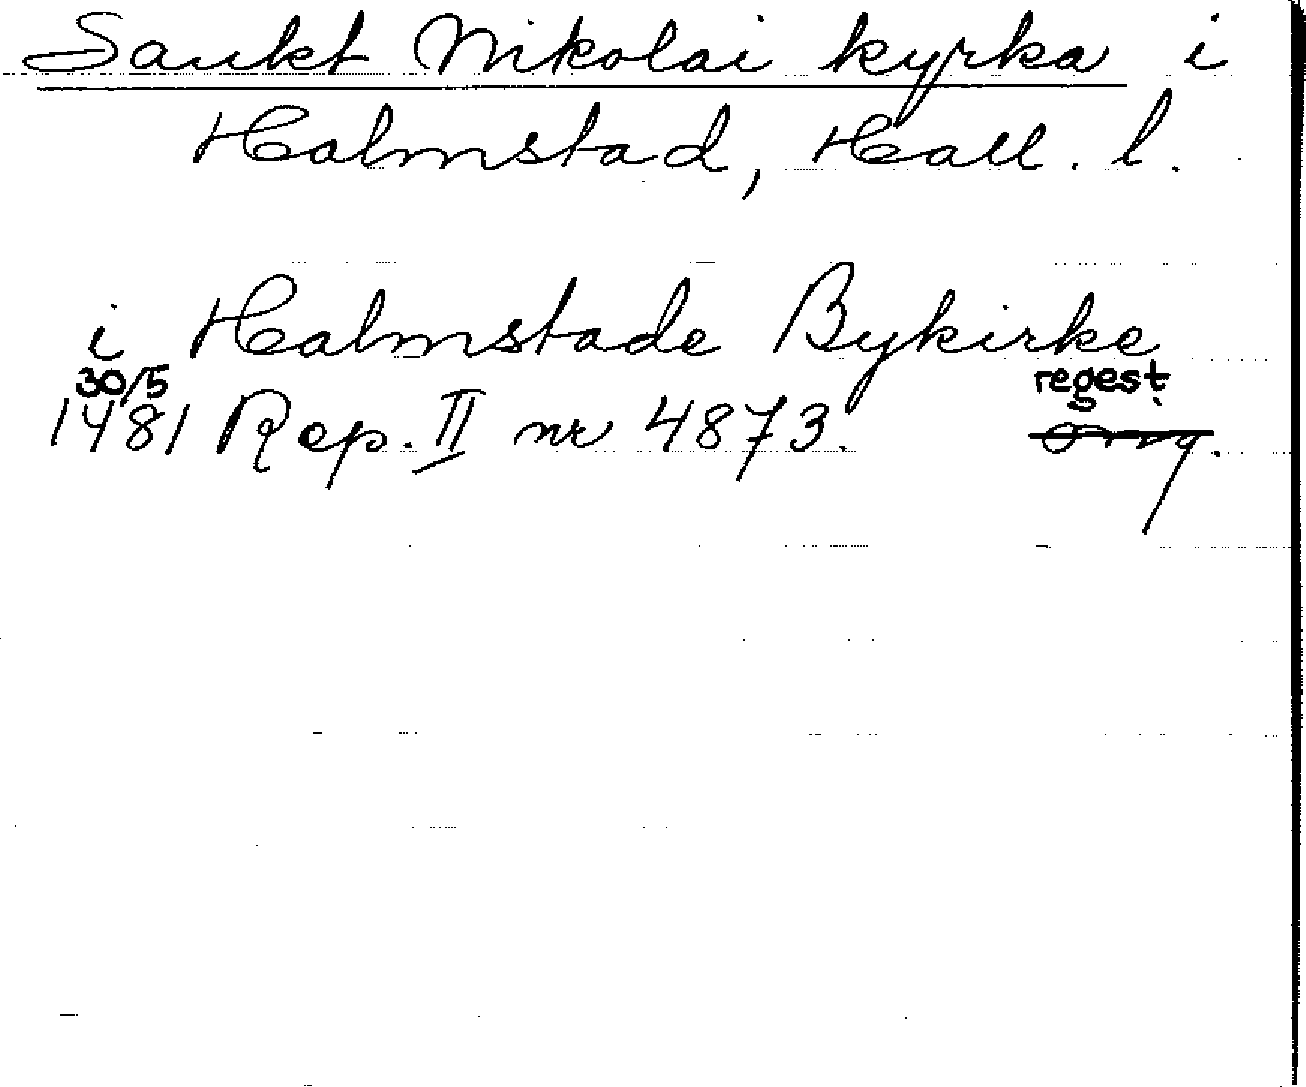 Sankt Nikolai kyrka i
Halmstad, Hall. l.
i Halmstade Bykirke
30/5 regest.
1481 Rep. II nr 4873. orig.